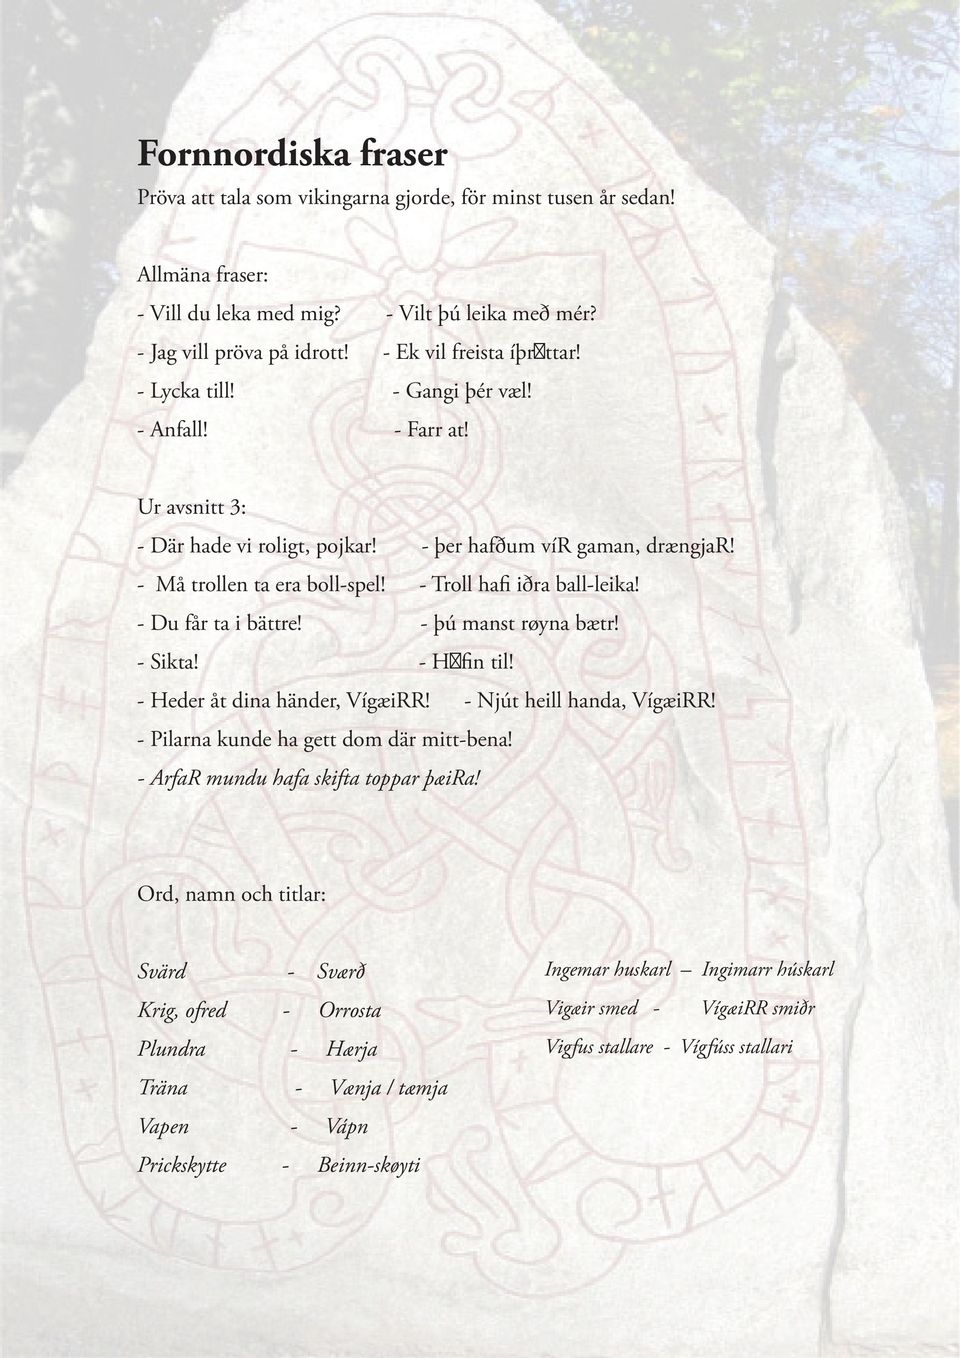 Fornnordiska fraser
Pröva att tala som vikingarna gjorde, för minst tusen år sedan!
Allmäna fraser:
- Vill du leka med mig? - Vilt þú leika með mér?
- Jag vill pröva på idrott! - Ek vil freista íþr☒ttar!
- Lycka till! - Gangi þér væl!
- Anfall! - Farr at!
Ur avsnitt 3:
- Där hade vi roligt, pojkar! - þer hafðum víR gaman, drængjaR!
- Må trollen ta era boll-spel! - Troll hafi iðra ball-leika!
- Du får ta i bättre! - þú manst røyna bætr!
- Sikta! - H☒fin til!
- Heder åt dina händer, VígæiRR! - Njút heill handa, VígæiRR!
- Pilarna kunde ha gett dom där mitt-bena!
- ArfaR mundu hafa skifta toppar þæiRa!
Ord, namn och titlar:
Svärd - Sværð
Krig, ofred - Orrosta
Plundra - Hærja
Träna - Vænja / tæmja
Vapen - Vápn
Prickskytte - Beinn-skøyti
Ingemar huskarl – Ingimarr húskarl
Vigæir smed - VígæiRR smiðr
Vigfus stallare - Vígfúss stallari